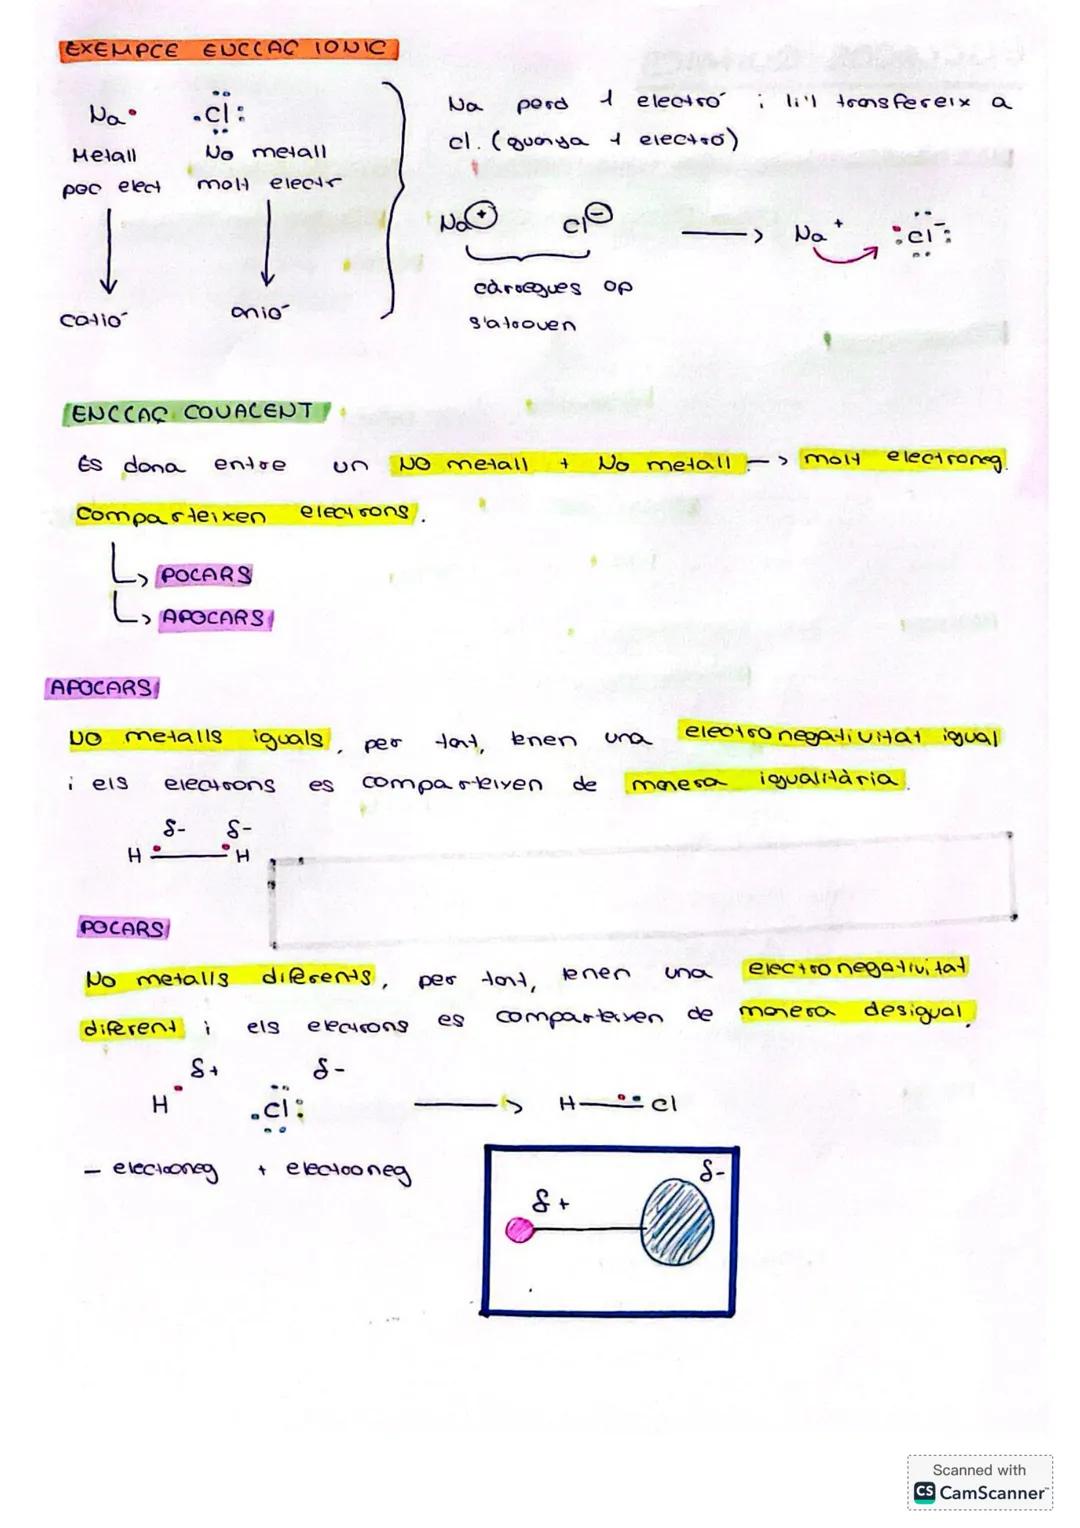 EXEMPLE ENLLAÇ IONIC
Na• •Cl:
Metall No metall
poc elect molt electr
catió anió
Na perd 1 electró i li'l transfereix a
cl. (guanya 1 electró)
Na + cl − → Na + :Cl−:
càrregues op
s'atrauen
ENLLAÇ COVALENT
Es dona entre un NO metall + No metall → molt electroneg.
Comparteixen electrons.
↳ POLARS
↳ APOLARS
APOLARS
NO metalls iguals, per tant, tenen una electronegativitat igual
i els electrons es comparteixen de manera igualitària.
δ- δ-
H H
POLARS
No metalls diferents, per tant, tenen una electronegativitat
diferent i els electrons es comparteixen de manera desigual.
δ+ δ-
H• •Cl: → H—••Cl
- electroneg + electroneg
δ+ δ-
Scanned with
CS CamScanner